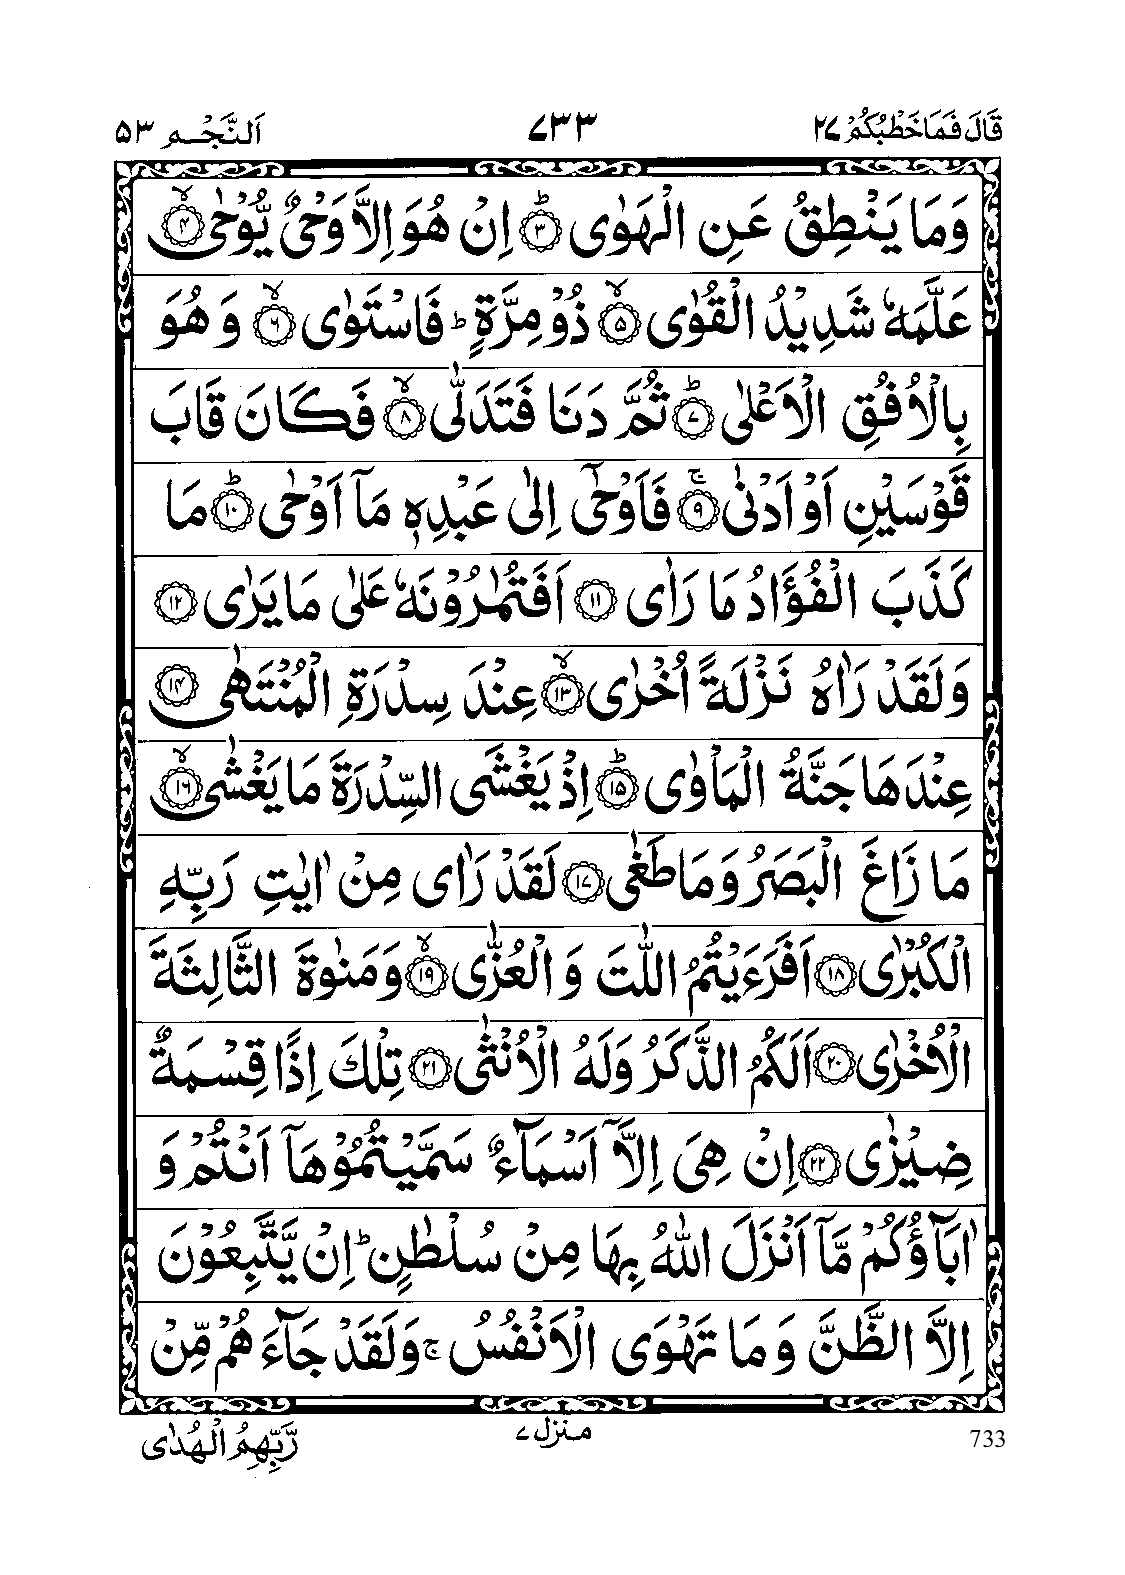 قَالَ فَمَا خَطْبُكُمْ ٢٧ ٧٣٣ اَلنَّجْم ٥٣
وَمَا يَنْطِقُ عَنِ الْهَوٰى ؕ﴿۳﴾ اِنْ هُوَ اِلَّا وَحْىٌ يُّوْحٰى ۙ﴿۴﴾
عَلَّمَهٗ شَدِيْدُ الْقُوٰى ۙ﴿۵﴾ ذُوْ مِرَّةٍ ؕ فَاسْتَوٰى ۙ﴿۶﴾ وَ هُوَ
بِالْاُفُقِ الْاَعْلٰى ؕ﴿۷﴾ ثُمَّ دَنَا فَتَدَلّٰى ۙ﴿۸﴾ فَكَانَ قَابَ
قَوْسَيْنِ اَوْ اَدْنٰى ۚ﴿۹﴾ فَاَوْحٰۤى اِلٰى عَبْدِهٖ مَاۤ اَوْحٰى ؕ﴿۱۰﴾ مَا
كَذَبَ الْفُؤَادُ مَا رَاٰى ﴿۱۱﴾ اَفَتُمٰرُوْنَهٗ عَلٰى مَا يَرٰى ﴿۱۲﴾
وَلَقَدْ رَاٰهُ نَزْلَةً اُخْرٰى ۙ﴿۱۳﴾ عِنْدَ سِدْرَةِ الْمُنْتَهٰى ﴿۱۴﴾
عِنْدَهَا جَنَّةُ الْمَاْوٰى ؕ﴿۱۵﴾ اِذْ يَغْشَى السِّدْرَةَ مَا يَغْشٰى ۙ﴿۱۶﴾
مَا زَاغَ الْبَصَرُ وَمَا طَغٰى ﴿۱۷﴾ لَقَدْ رَاٰى مِنْ اٰيٰتِ رَبِّهِ
الْكُبْرٰى ﴿۱۸﴾ اَفَرَءَيْتُمُ اللّٰتَ وَ الْعُزّٰى ۙ﴿۱۹﴾ وَمَنٰوةَ الثَّالِثَةَ
الْاُخْرٰى ﴿۲۰﴾ اَلَكُمُ الذَّكَرُ وَلَهُ الْاُنْثٰى ﴿۲۱﴾ تِلْكَ اِذًا قِسْمَةٌ
ضِيْزٰى ﴿۲۲﴾ اِنْ هِىَ اِلَّاۤ اَسْمَآءٌ سَمَّيْتُمُوْهَاۤ اَنْتُمْ وَ
اٰبَآؤُكُمْ مَّاۤ اَنْزَلَ اللّٰهُ بِهَا مِنْ سُلْطٰنٍ ؕ اِنْ يَّتَّبِعُوْنَ
اِلَّا الظَّنَّ وَ مَا تَهْوَى الْاَنْفُسُ ۚ وَلَقَدْ جَآءَ هُمْ مِّنْ
رَّبِّهِمُ الْهُدٰى منزل ٧ 733